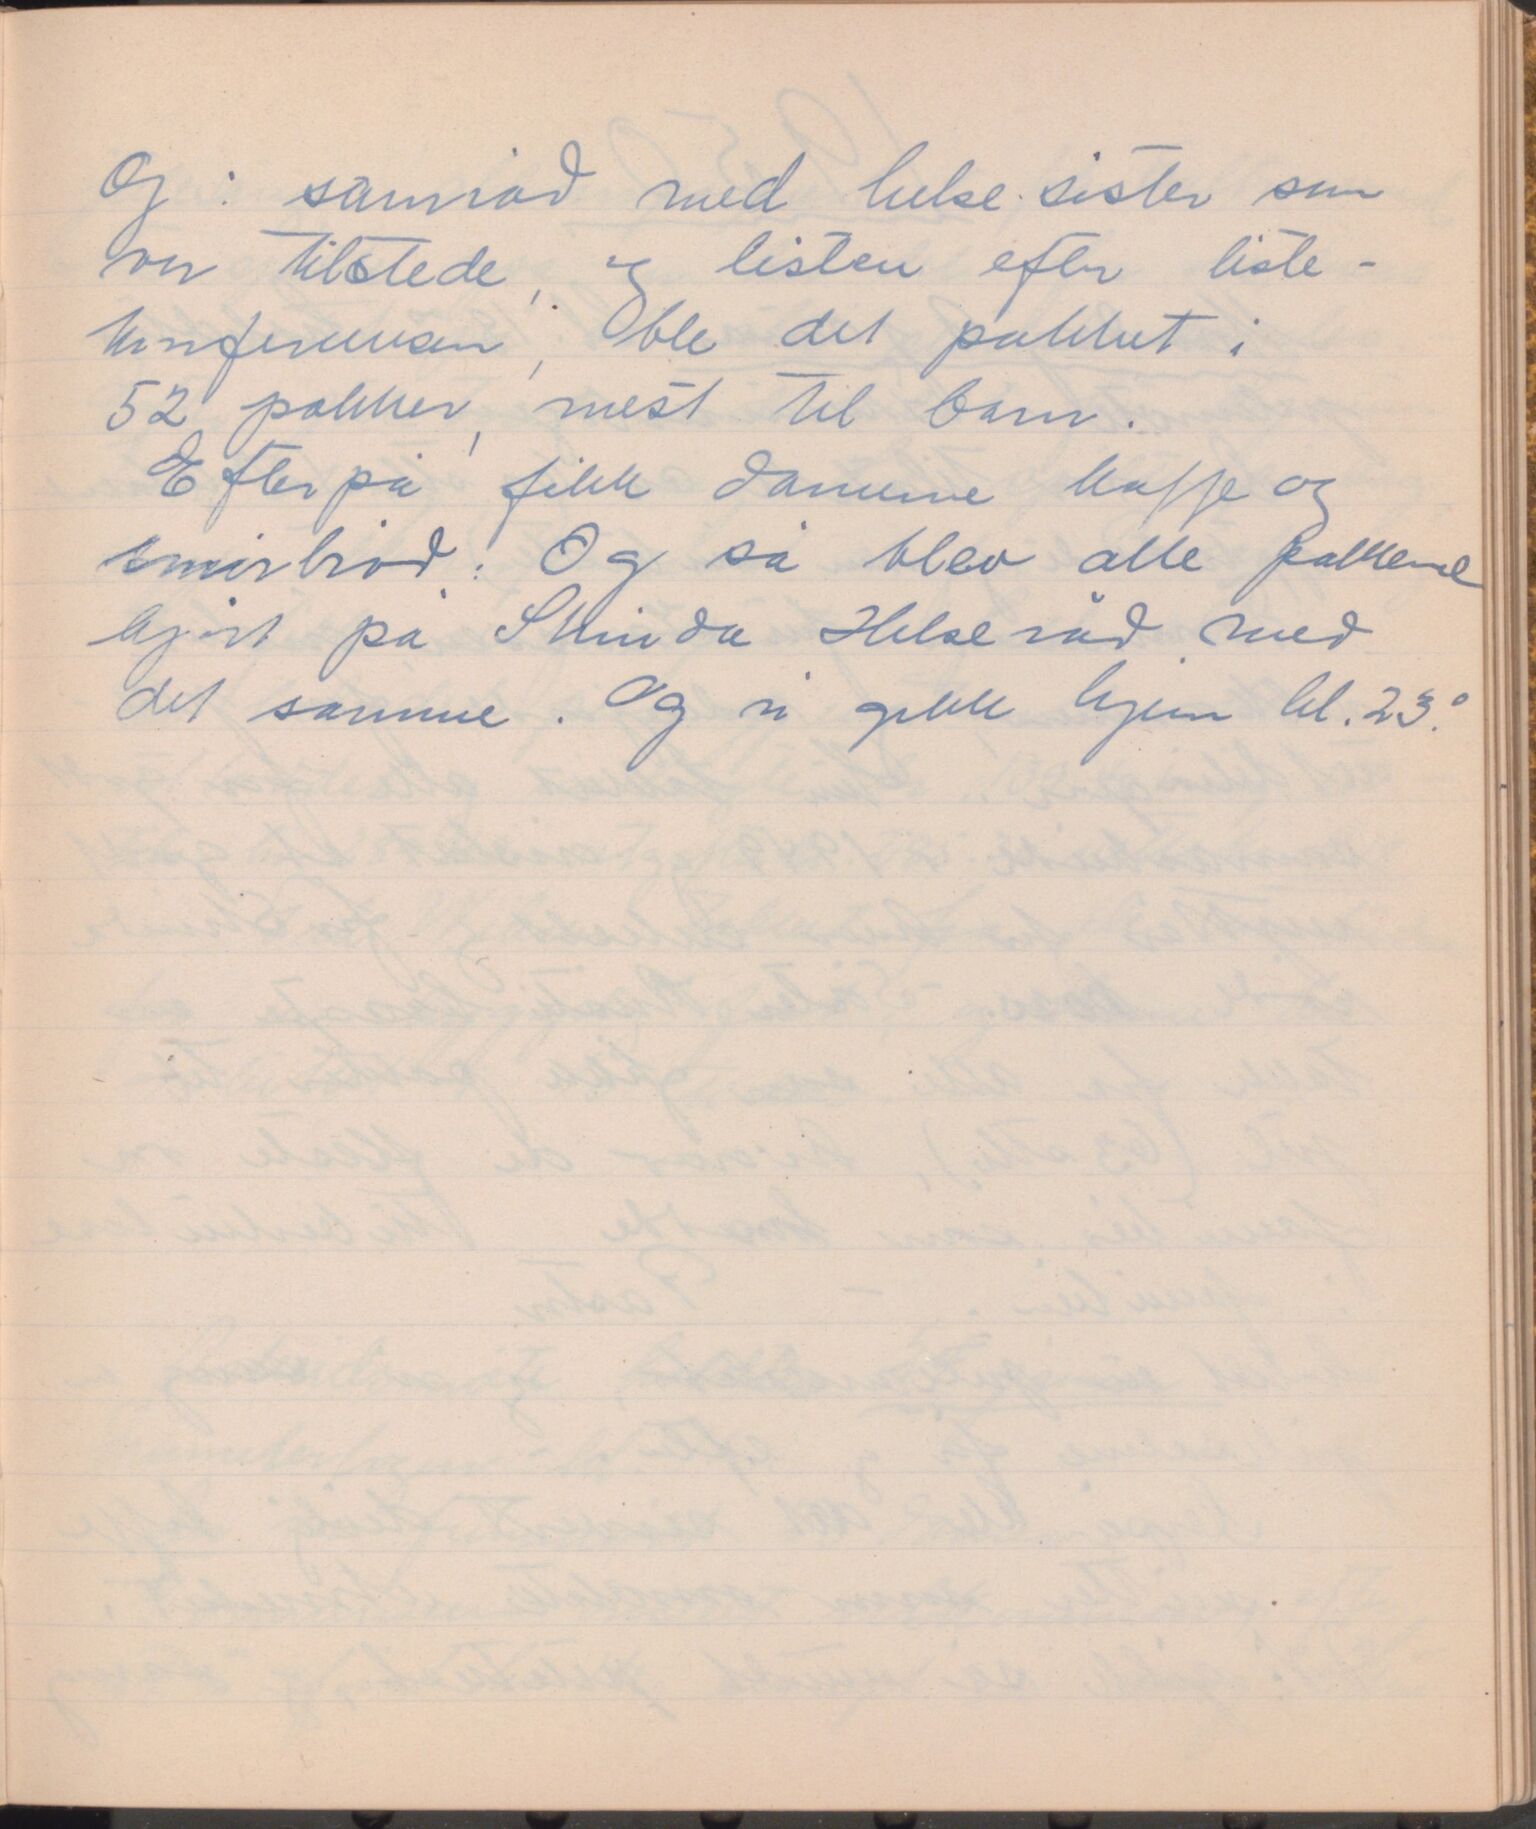 Og i samråd med helsesister som
var tilstede, og listen efter liste-
konferansen, ble det pakket i
52 pakker, mest til barn.
Efterpå fikk damene kaffe og
smørbrød. Og så blev alle pakkene
kjørt på Strinda Helseråd med
det samme. Og vi gikk hjem kl. 23.º